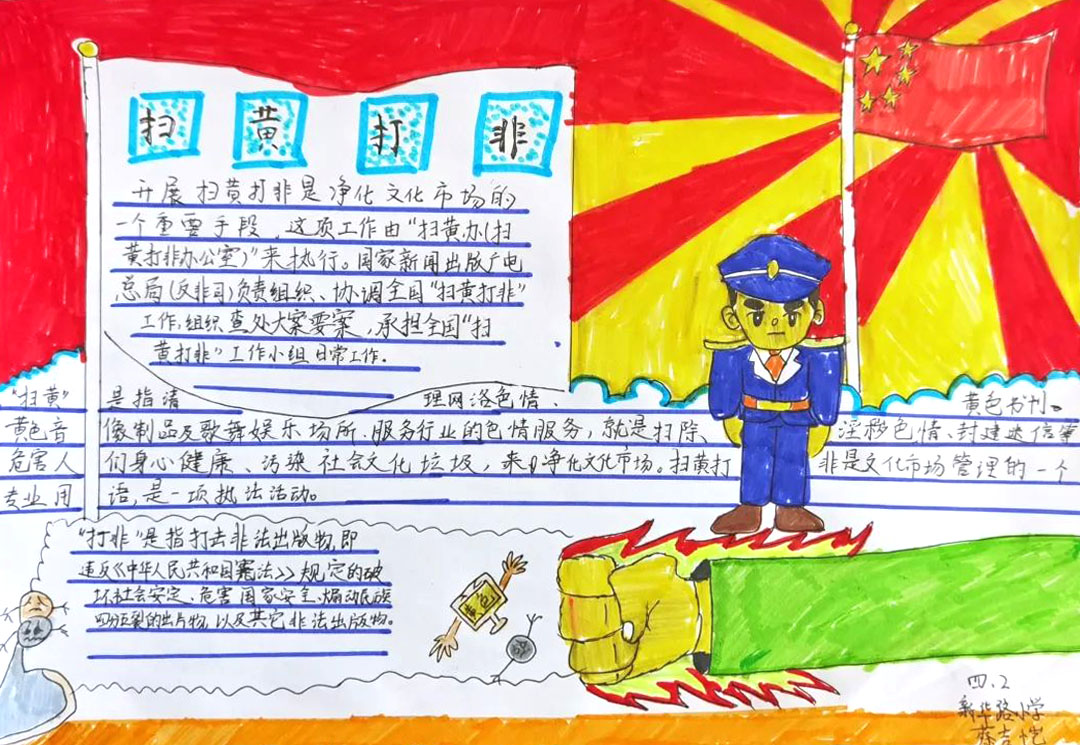 扫黄打非
开展扫黄打非是净化文化市场的
一个重要手段，这项工作由“扫黄办(扫
黄打非办公室)”来执行。国家新闻出版广电
总局(反非司)负责组织、协调全国“扫黄打非”
工作，组织查处大案要案，承担全国“扫
黄打非”工作小组日常工作．
“扫黄” 是指清 理网洛色情、 黄色书刊、
黄色音 像制品及歌舞娱乐场所、服务行业的色情服务，就是扫除、 淫秽色情、封建迷信等
危害人 们身心健康、污染社会文化垃圾，来净化文化市场。扫黄打 非是文化市场管理的一个
专业用 语，是一项执法活动。
“打非”是指打击非法出版物，即
违反《中华人民共和国宪法》规定的破
坏社会安定、危害国家安全、煽动民族
四分五裂的出片物，以及其它非法出版物。
四．2
新华路小学